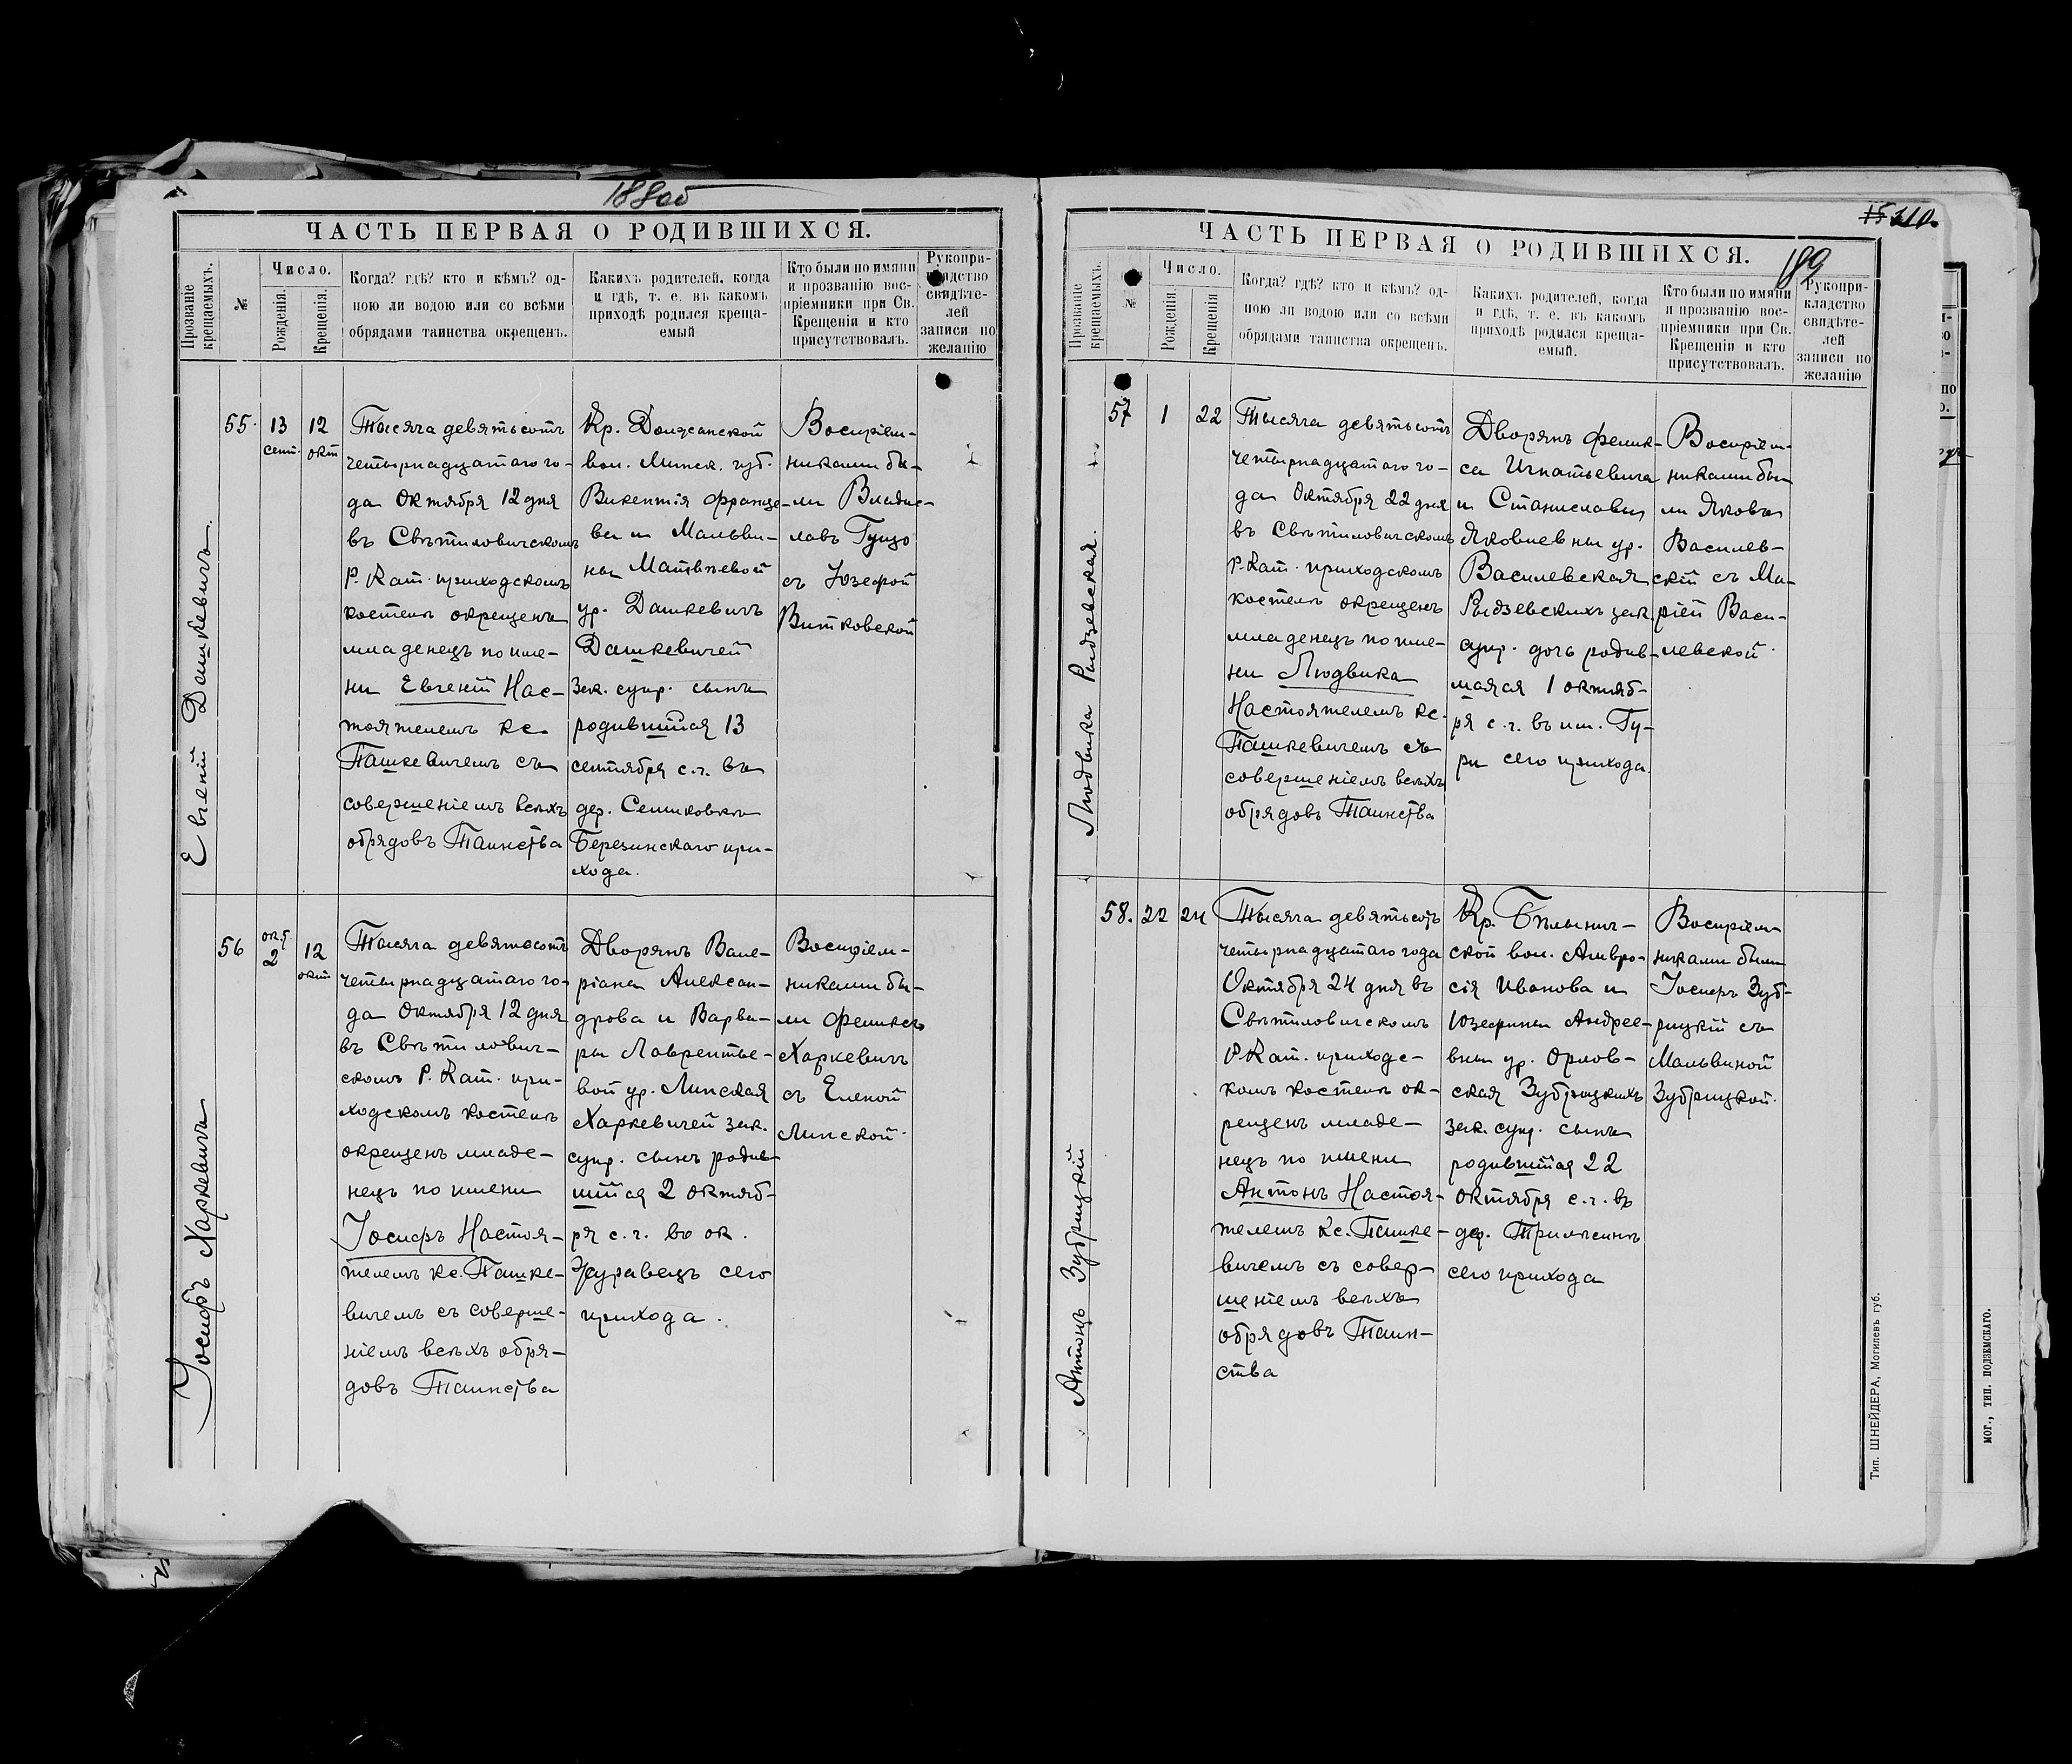 188об
ЧАСТЬ ПЕРВАЯ О РОДИВШИХСЯ.
Прозваніе крещаемыхъ.
№
Число.
Рожденія.
Крещенія.
Когда? гдѣ? кто и кѣмъ? од-
ною ли водою или со всѣми
обрядами таинства окрещенъ.
Какихъ родителей, когда
и гдѣ, т. е. въ какомъ
приходѣ родился креща-
емый
Кто были по имяни
и прозванію вос-
пріемники при Св.
Крещеніи и кто
присутствовалъ.
Рукопри-
кладство
свидѣте-
лей
записи по
желанію
Евгеній Дашкевичъ.
55.
13
сент.
12
окт
Тысяча девятьсотъ
четырнадцатаго го-
да Октября 12 дня
въ Свѣтиловическомъ
Р. Кат. приходскомъ
костелѣ окрещенъ
младенецъ по име-
ни Евгеній Нас-
тоятелемъ кс.
Пашкевичемъ съ
совершеніемъ всѣхъ
обрядовъ Таинства
Кр. Должанской
вол. Минск. губ.
Викентія Франце-
ва и Мальви-
ны Матвѣевой
ур. Дашкевичъ
Дашкевичей
зак. супр. сынъ
родившійся 13
сентября с.г. въ
дер. Селиковка
Березинскаго при-
хода.
Воспріем-
никами бы-
ли Владис-
лавъ Гуцо
съ Юзефой
Витковской
Іосифъ Харкевичъ
56
окт.
2
12
окт
Тысяча девятьсотъ
четырнадцатаго го-
да Октября 12 дня
въ Свѣтилович-
скомъ Р. Кат. при-
ходскомъ костелѣ
окрещенъ младе-
нецъ по имени
Іосифъ Настоя-
телемъ кс. Пашке-
вичемъ съ соверше-
ніемъ всѣхъ обря-
довъ Таинства
Дворянъ Вале-
ріана Алексан-
дрова и Варва-
ры Лаврентье-
вой ур. Линская
Харкевичей зак.
супр. сынъ родив-
шійся 2 октяб-
ря с.г. въ ок.
Журавецъ сего
прихода.
Воспріем-
никами бы-
ли Феликсъ
Харкевичъ
съ Еленой
Линской.
15 110.
189
ЧАСТЬ ПЕРВАЯ О РОДИВШИХСЯ.
Прозваніе крещаемыхъ.
№
Число.
Рожденія.
Крещенія
Когда? гдѣ? кто и кѣмъ? од-
ною ли водою или со всѣми
обрядами таинства окрещенъ.
Какихъ родителей, когда
и гдѣ, т. е. въ какомъ
приходѣ родился креща-
емый.
Кто были по имяни
и прозванію вос-
пріемники при Св.
Крещеніи и кто
присутствовалъ.
Рукопри-
кладство
свидѣте-
лей
записи по
желанію
Людвика Рыдзевская.
57
1
22
Тысяча девятьсотъ
четырнадцатаго го-
да Октября 22 дня
въ Свѣтиловическомъ
Р. Кат. приходскомъ
костелѣ окрещенъ
младенецъ по име-
ни Людвика
Настоятелемъ кс.
Пашкевичемъ съ
совершеніемъ всѣхъ
обрядовъ Таинства
Дворянъ Феликс-
са Игнатьевича
и Станиславы
Яковлевны ур.
Василевская
Рыдзевскихъ зак.
супр. дочь родив-
шаяся 1 октяб-
ря с.г. въ им. Гу-
ри сего прихода.
Воспріем-
никами бы-
ли Яковъ
Василев-
скій съ Ма-
ріей Васи-
левской.
Антонъ Зубрицкій
58.
22
24
Тысяча девятьсотъ
четырнадцатаго года
Октября 24 дня въ
Свѣтиловическомъ
Р. Кат. приходс-
комъ костелѣ ок-
рещенъ младе-
нецъ по имени
Антонъ Настоя-
телемъ кс. Пашке-
вичемъ съ совер-
шеніемъ всѣхъ
обрядовъ Таин-
ства
Кр. Бѣлынич-
ской вол. Амвро-
сія Иванова и
Юзефины Андрее-
вны ур. Орлов-
ская Зубрицкихъ
зак. супр. сынъ
родившійся 22
октября с.г. въ
дер. Трилѣсинъ
сего прихода
Воспріем-
никами были
Іосифъ Зуб-
рицкій съ
Мальвиной
Зубрицкой.
Тип. ШНЕЙДЕРА, Могилевъ губ.
МОГ., ТИП. ПОДЗЕМСКАГО.